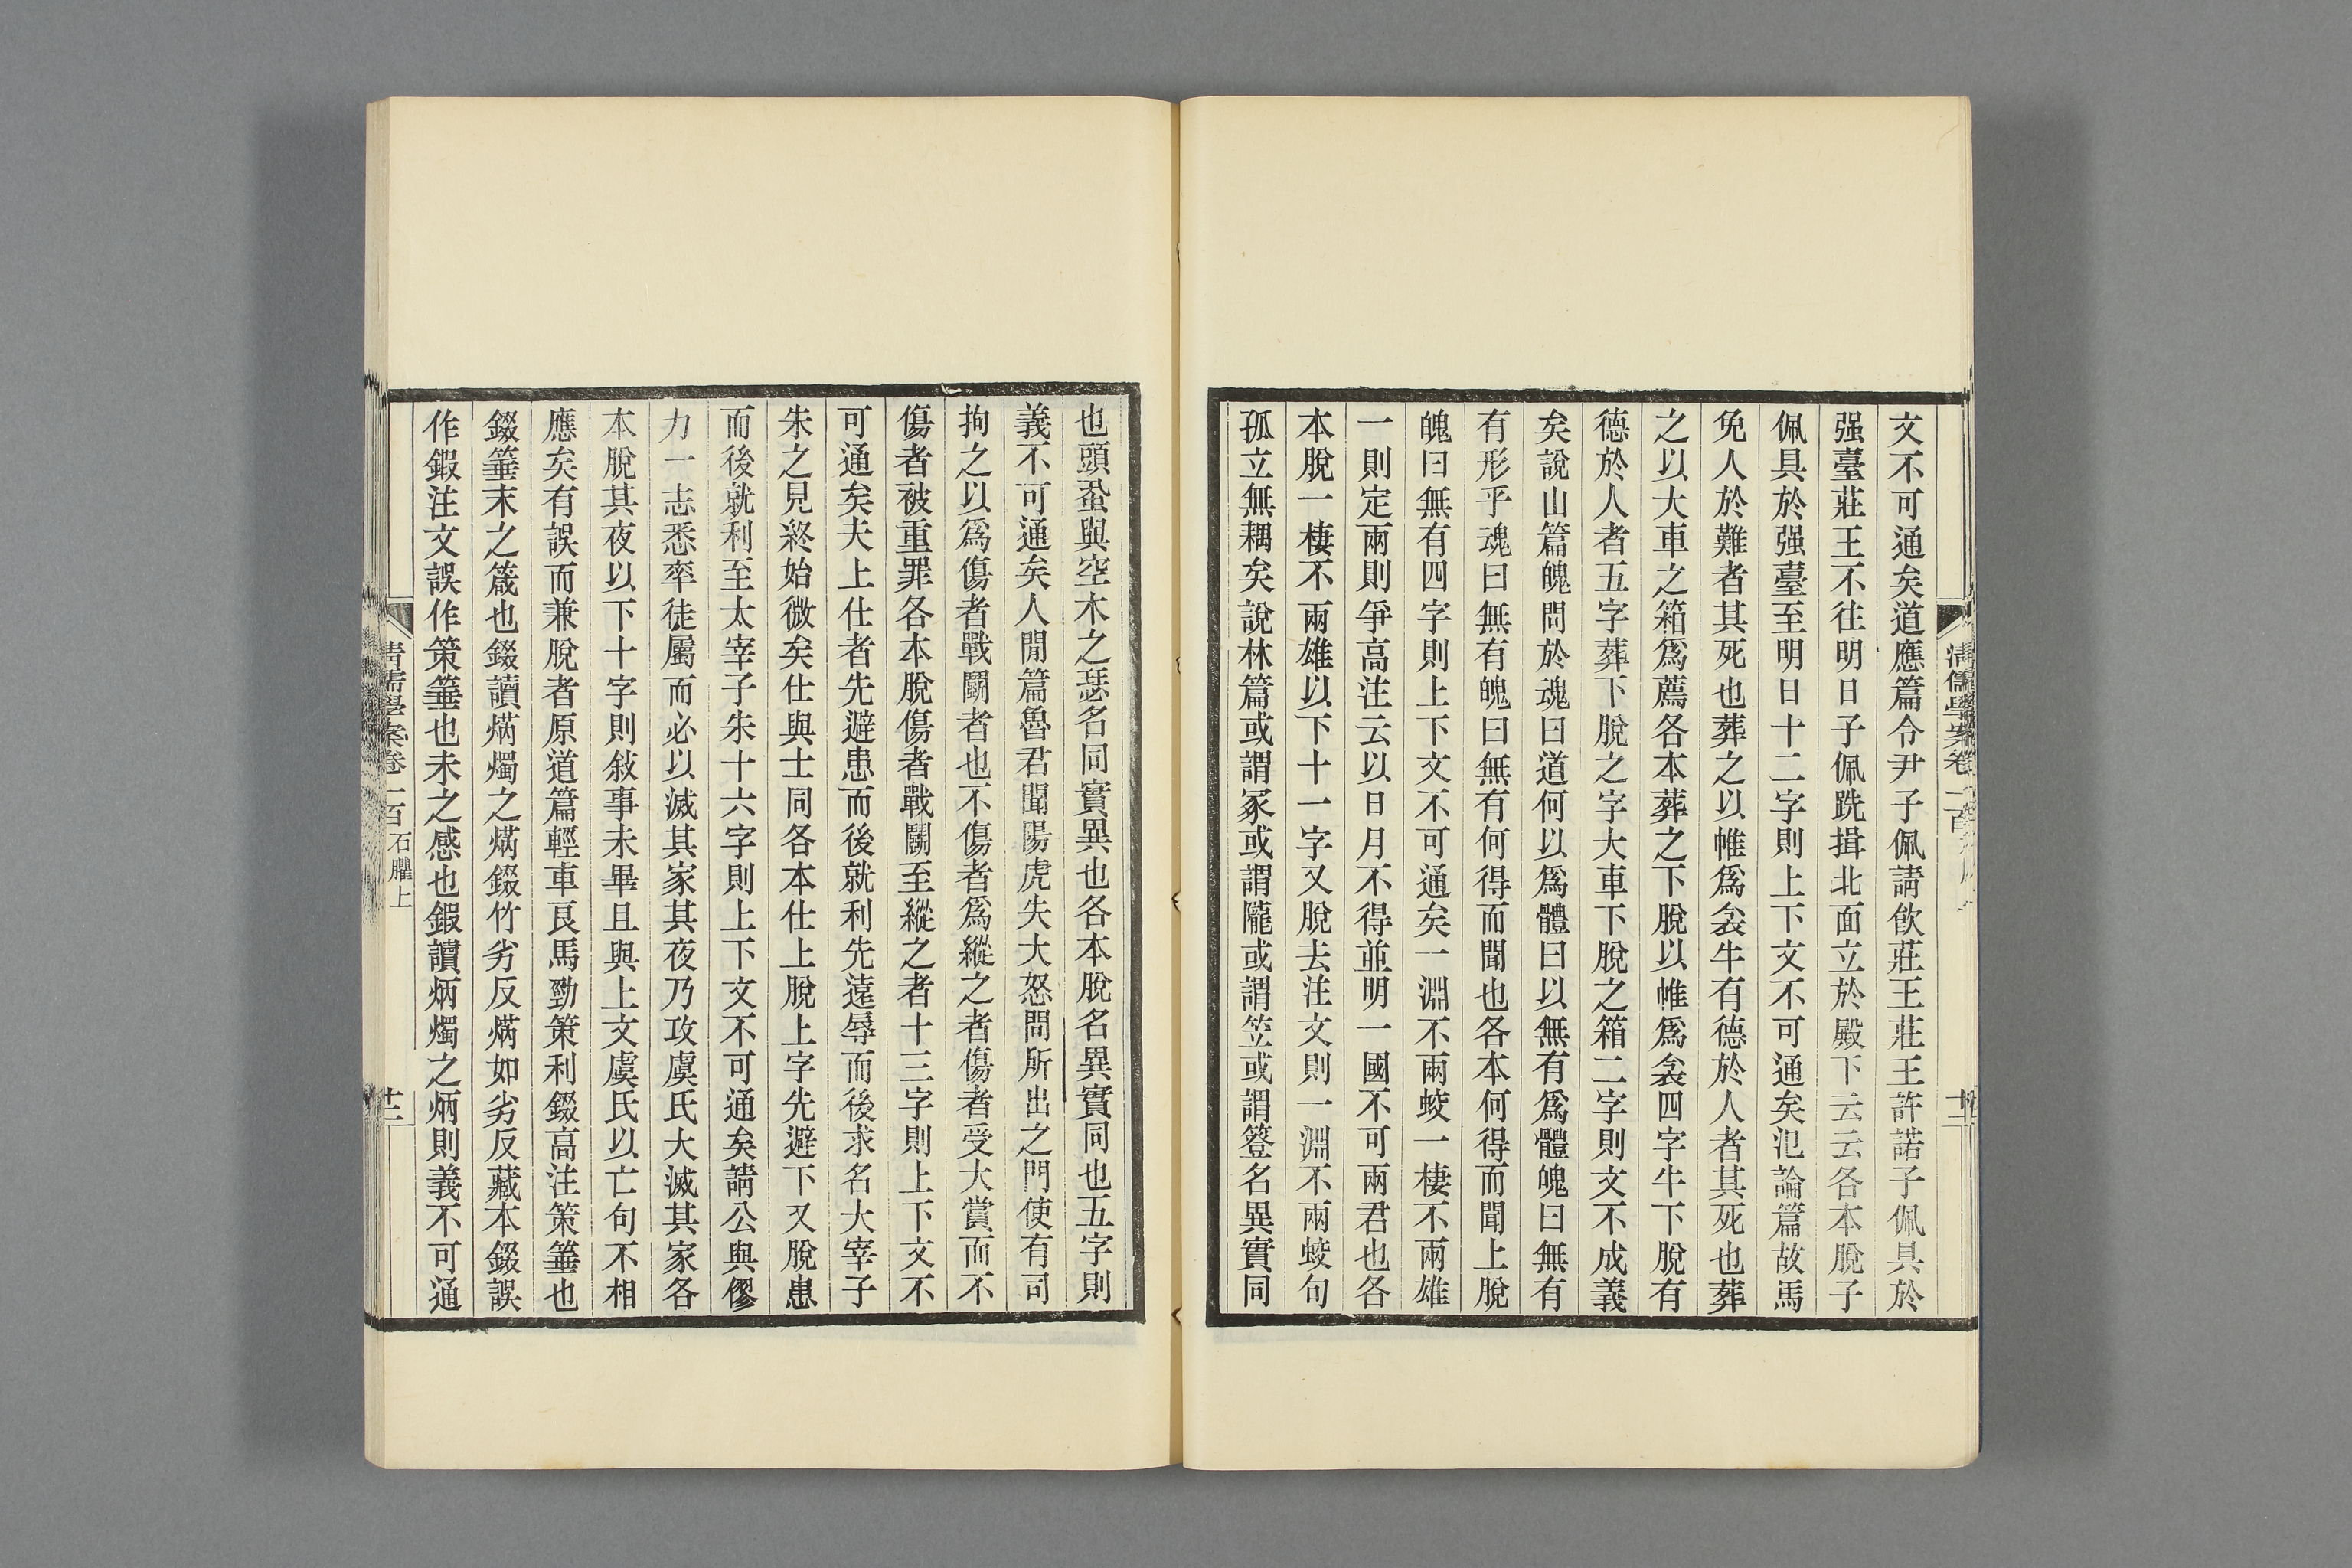 文不可通矣道應篇令尹子佩請飲莊王莊王許諾子佩具於
强臺莊王不往明日子佩跣揖北面立於殿下云云各本脫子
佩具於强臺至明日十二字則上下文不可通矣氾論篇故馬
免人於難者其死也葬之以帷爲衾牛有德於人者其死也葬
之以大車之箱爲薦各本葬之下脫以帷爲衾四字牛下脫有
德於人者五字葬下脫之字大車下脫之箱二字則文不成義
矣說山篇魄問於魂曰道何以爲體曰以無有爲體魄曰無有
有形乎魂曰無有魄曰無有何得而聞也各本何得而聞上脫
魄曰無有四字則上下文不可通矣一淵不兩蛟一棲不兩雄
一則定兩則爭高注云以日月不得並明一國不可兩君也各
本脫一棲不兩雄以下十一字又脫去注文則一淵不兩蛟句
孤立無耦矣說林篇或謂冢或謂隴或謂笠或謂簦名異實同
也頭蝨與空木之瑟名同實異也各本脫名異實同也五字則
義不可通矣人閒篇魯君聞陽虎失大怒問所出之門使有司
拘之以爲傷者戰鬭者也不傷者爲縱之者傷者受大賞而不
傷者被重罪各本脫傷者戰鬭至縱之者十三字則上下文不
可通矣夫上仕者先避患而後就利先遠辱而後求名大宰子
朱之見終始微矣仕與士同各本仕上脫上字先避下又脫患
而後就利至太宰子朱十六字則上下文不可通矣請公與僇
力一志悉率徒屬而必以滅其家其夜乃攻虞氏大滅其家各
本脫其夜以下十字則敘事未畢且與上文虞氏以亡句不相
應矣有誤而兼脫者原道篇輕車良馬勁策利錣高注策箠也
錣箠末之箴也錣讀焫燭之焫錣竹劣反焫如劣反藏本錣誤
作鍜注文誤作策箠也未之感也鍜讀炳燭之炳則義不可通
清儒學案卷一百
清儒學案卷一百 石臞上